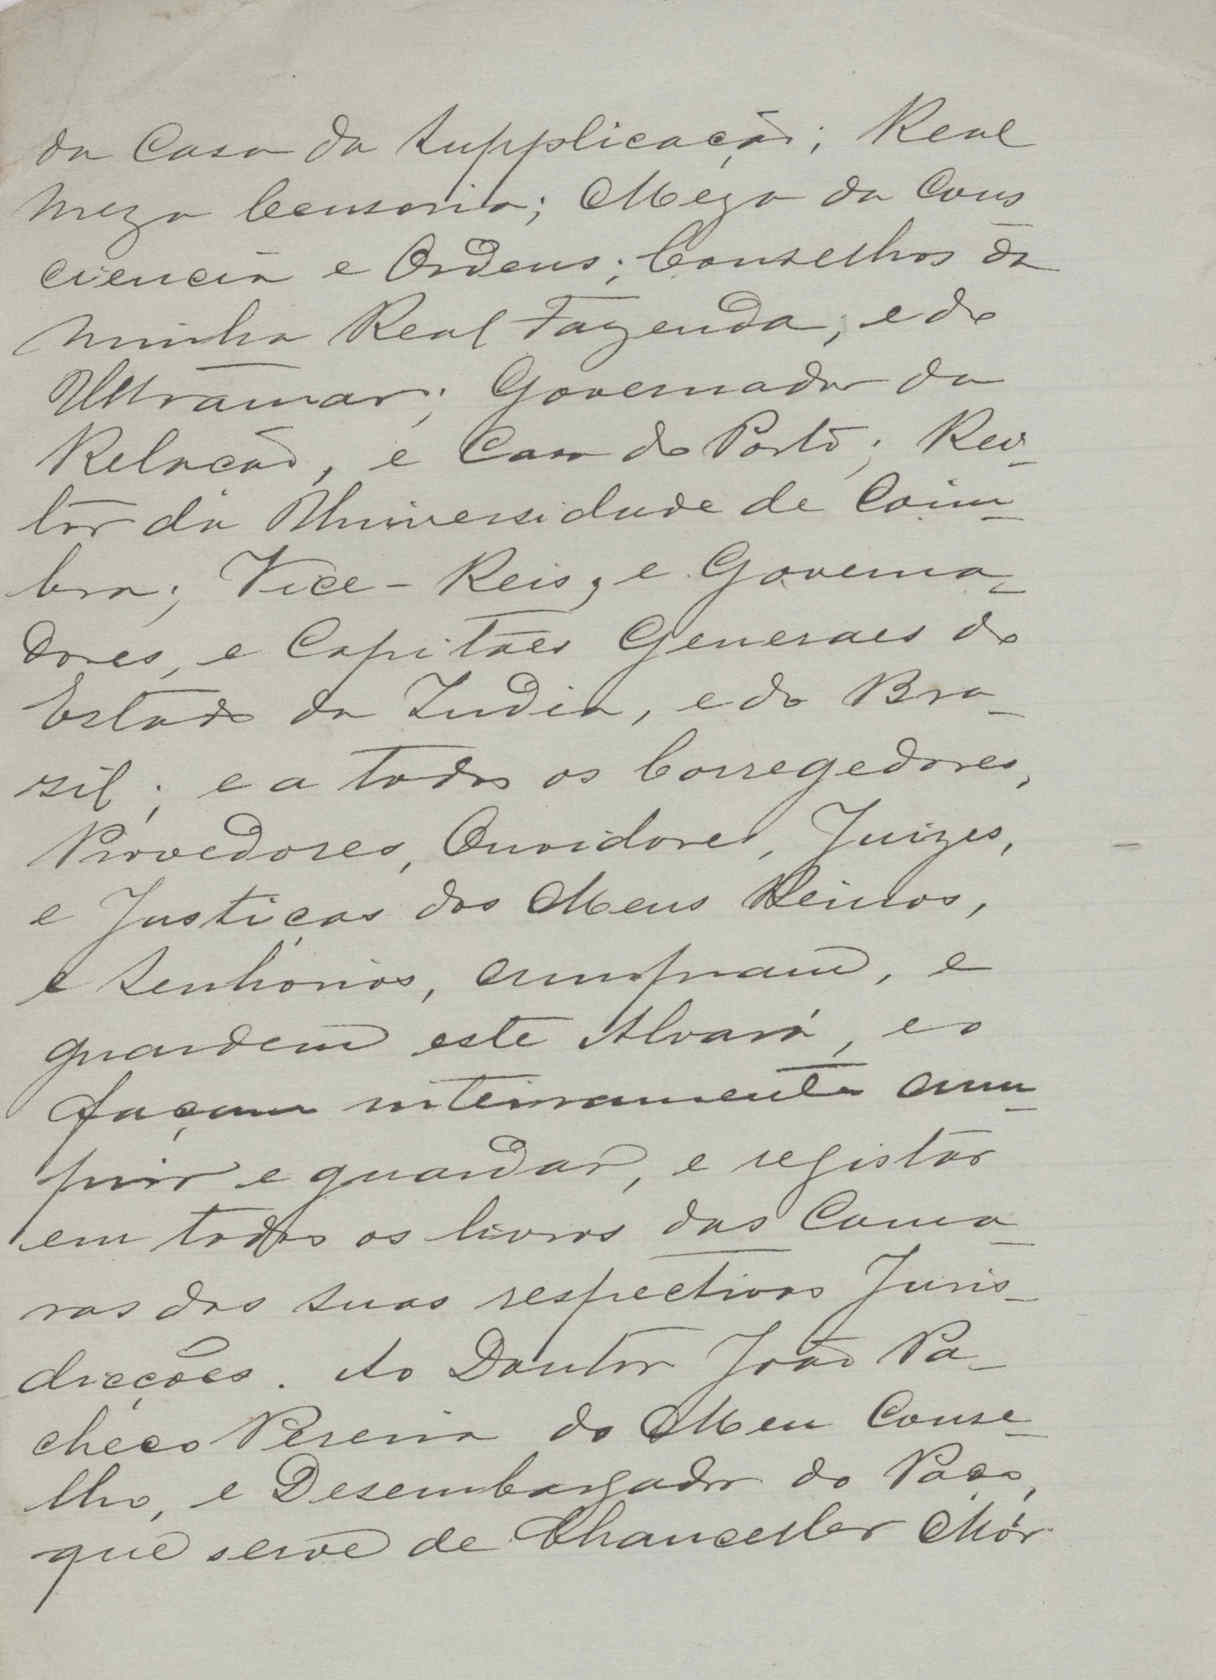 da Casa da Supplicação; Real
Meza Censoria; Meza da Cons
ciencia e Ordens; Conselhos da
minha Real Fazenda, e do
Ultramar; Governador da
Relação, e Casa do Porto; Rei-
tor da Universidade de Coim-
bra; Vice-Reis, e Governa-
dores, e Capitães Generaes do
Estado da India, e do Bra-
zil; e a todos os Corregedores,
Provedores, Ouvidores, Juizes,
e Justiças dos Meus Reinos,
e Senhorios, cumpram, e
guardem este Alvará, e o
façam inteiramente cum-
prir e guardar, e registar
em todos os livros das Cama-
ras das suas respectivas Juris-
dicções. Ao Doutor João Pa-
checo Pereira do Meu Conse-
lho, e Desembargador do Paço,
que serve de Chanceller Mór